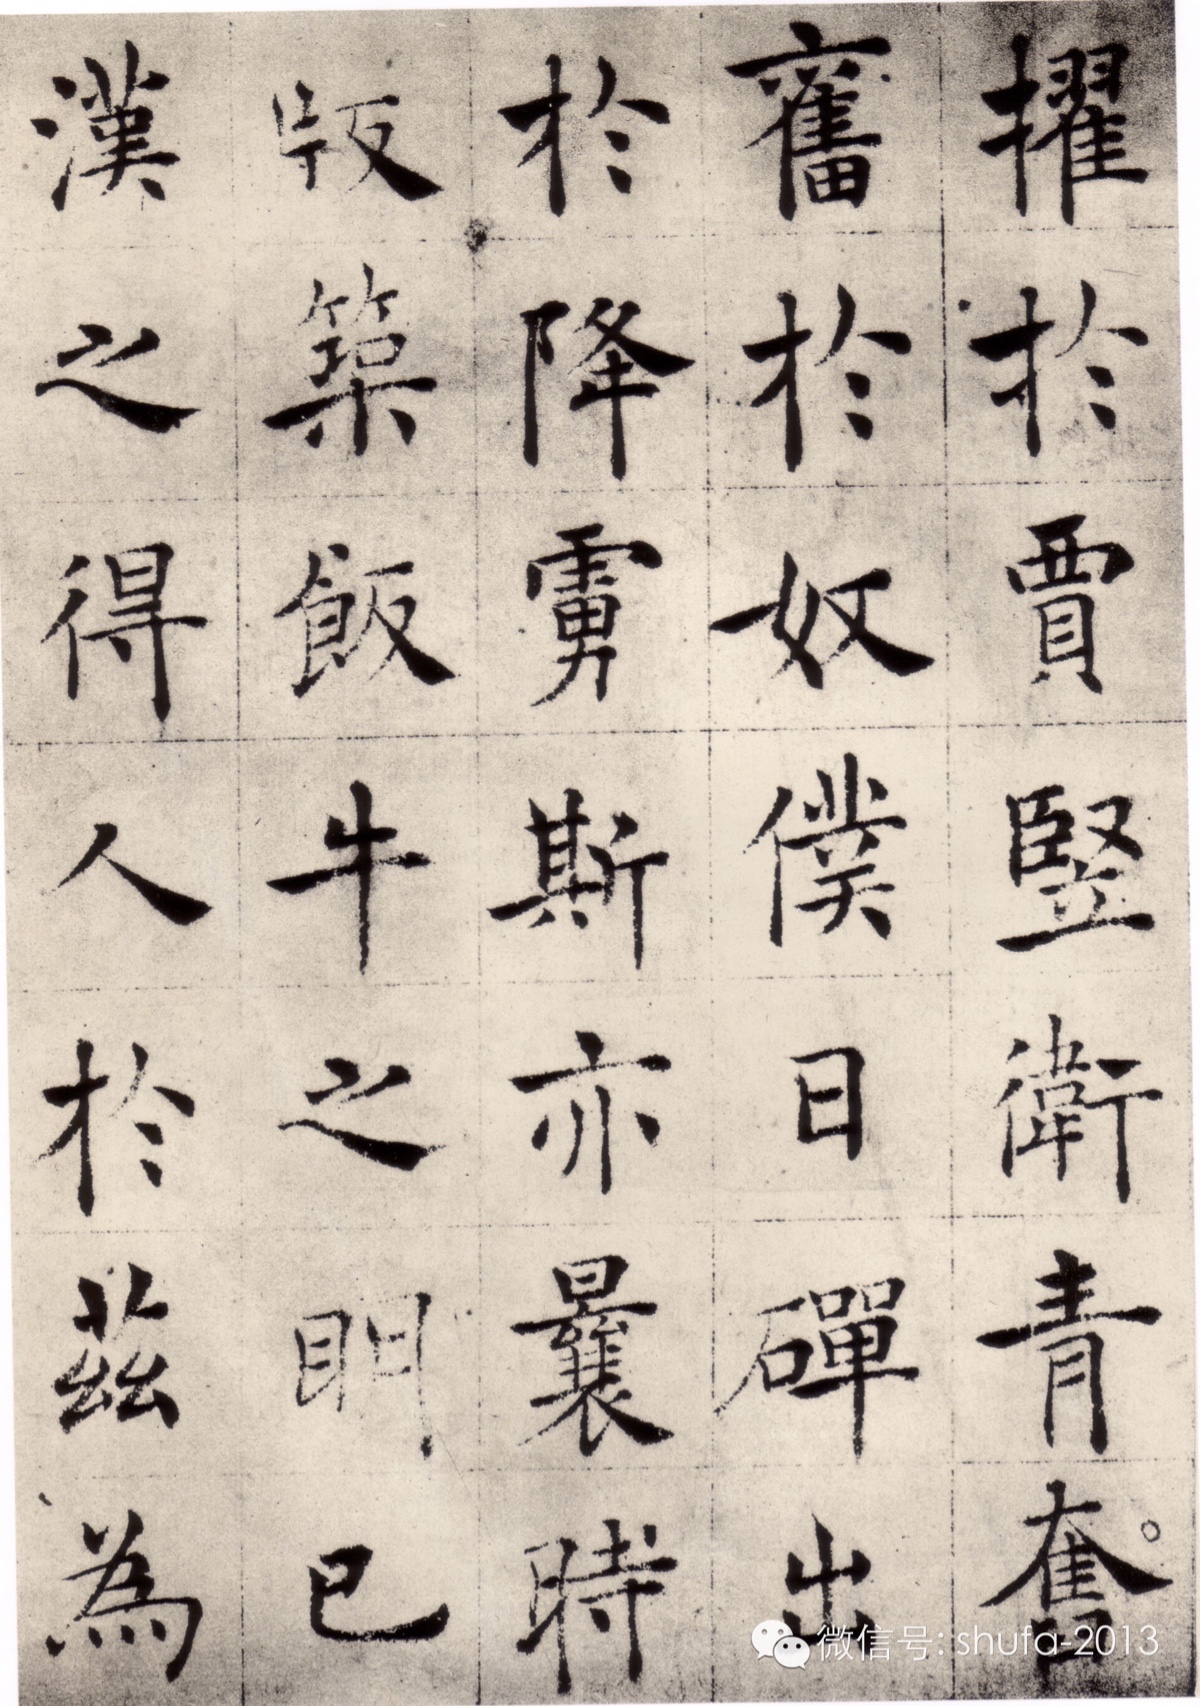 擢於賈豎衛青奮
奮於奴僕日磾出
於降虜斯亦曩時
版築飯牛之朙已
漢之得人於茲為
微信号: shufa-2013